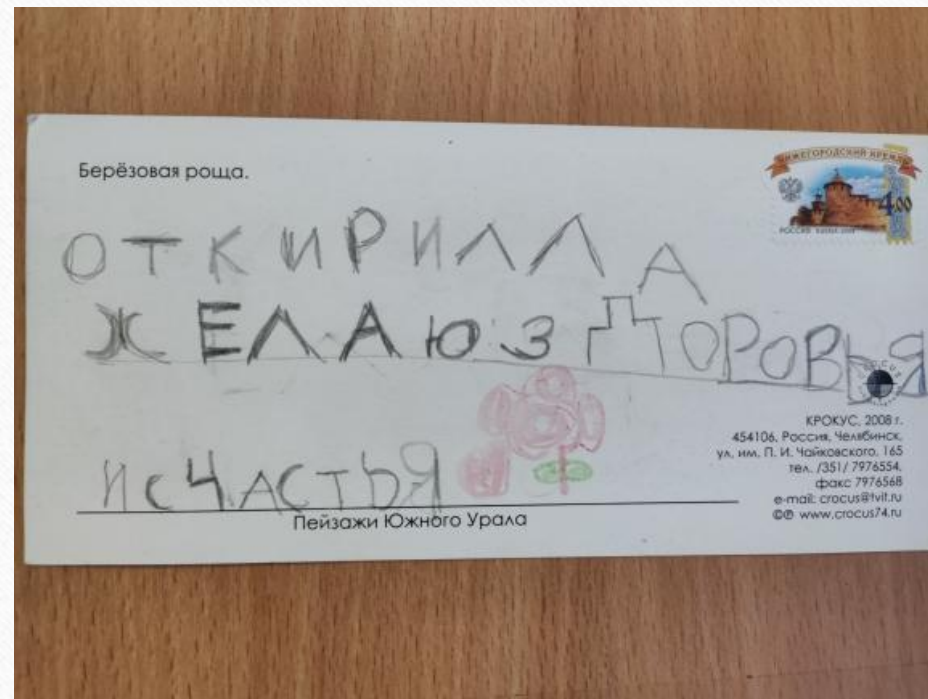 Берёзовая роща.
НИЖЕГОРОДСКИЙ КРЕМЛЬ
4.00
РОССИЯ RUSSIA 2009
ОТКИРИЛЛА
ЖЕЛАЮЗДОРОВЬЯ
КРОКУС, 2008 г.
454106, Россия, Челябинск,
ул. им. П. И. Чайковского, 165
тел. /351/ 7976554,
факс 7976568
e-mail: crocus@tvit.ru
©℗ www.crocus74.ru
ИСЧАСТЬЯ
Пейзажи Южного Урала